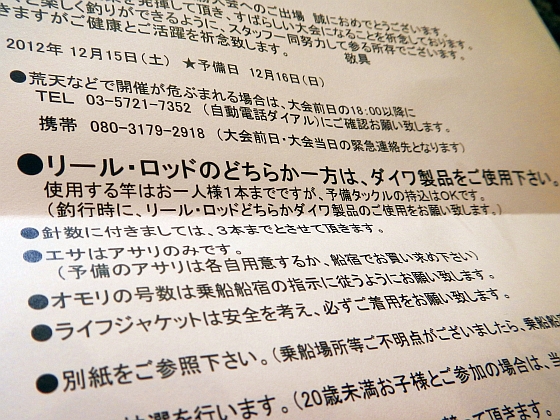 と楽しく釣りができるように、スタッフ一同努力して参る所存でございます。
きますがご健康とご活躍を祈念致します。 敬具
2012年 12月15日(土) ★予備日 12月16日(日)
●荒天などで開催が危ぶまれる場合は、大会前日の18:00以降に
TEL 03-5721-7352 (自動電話ダイアル)にご確認お願い致します。
携帯 080-3179-2918 (大会前日・大会当日の緊急連絡先となります)
●リール・ロッドのどちらか一方は、ダイワ製品をご使用下さい。
使用する竿はお一人様1本までですが、予備タックルの持込はOKです。
(釣行時に、リール・ロッドどちらかダイワ製品のご使用をお願い致します。)
●針数に付きましては、3本までとさせて頂きます。
●エサはアサリのみです。
(予備のアサリは各自用意するか、船宿でお買い求め下さい)
●オモリの号数は乗船船宿の指示に従うようにお願い致します。
●ライフジャケットは安全を考え、必ずご着用をお願い致します。
●別紙をご参照下さい。(乗船場所等ご不明点がございましたら、乗船船
抽選を行います。(20歳未満お子様とご参加の場合は、当